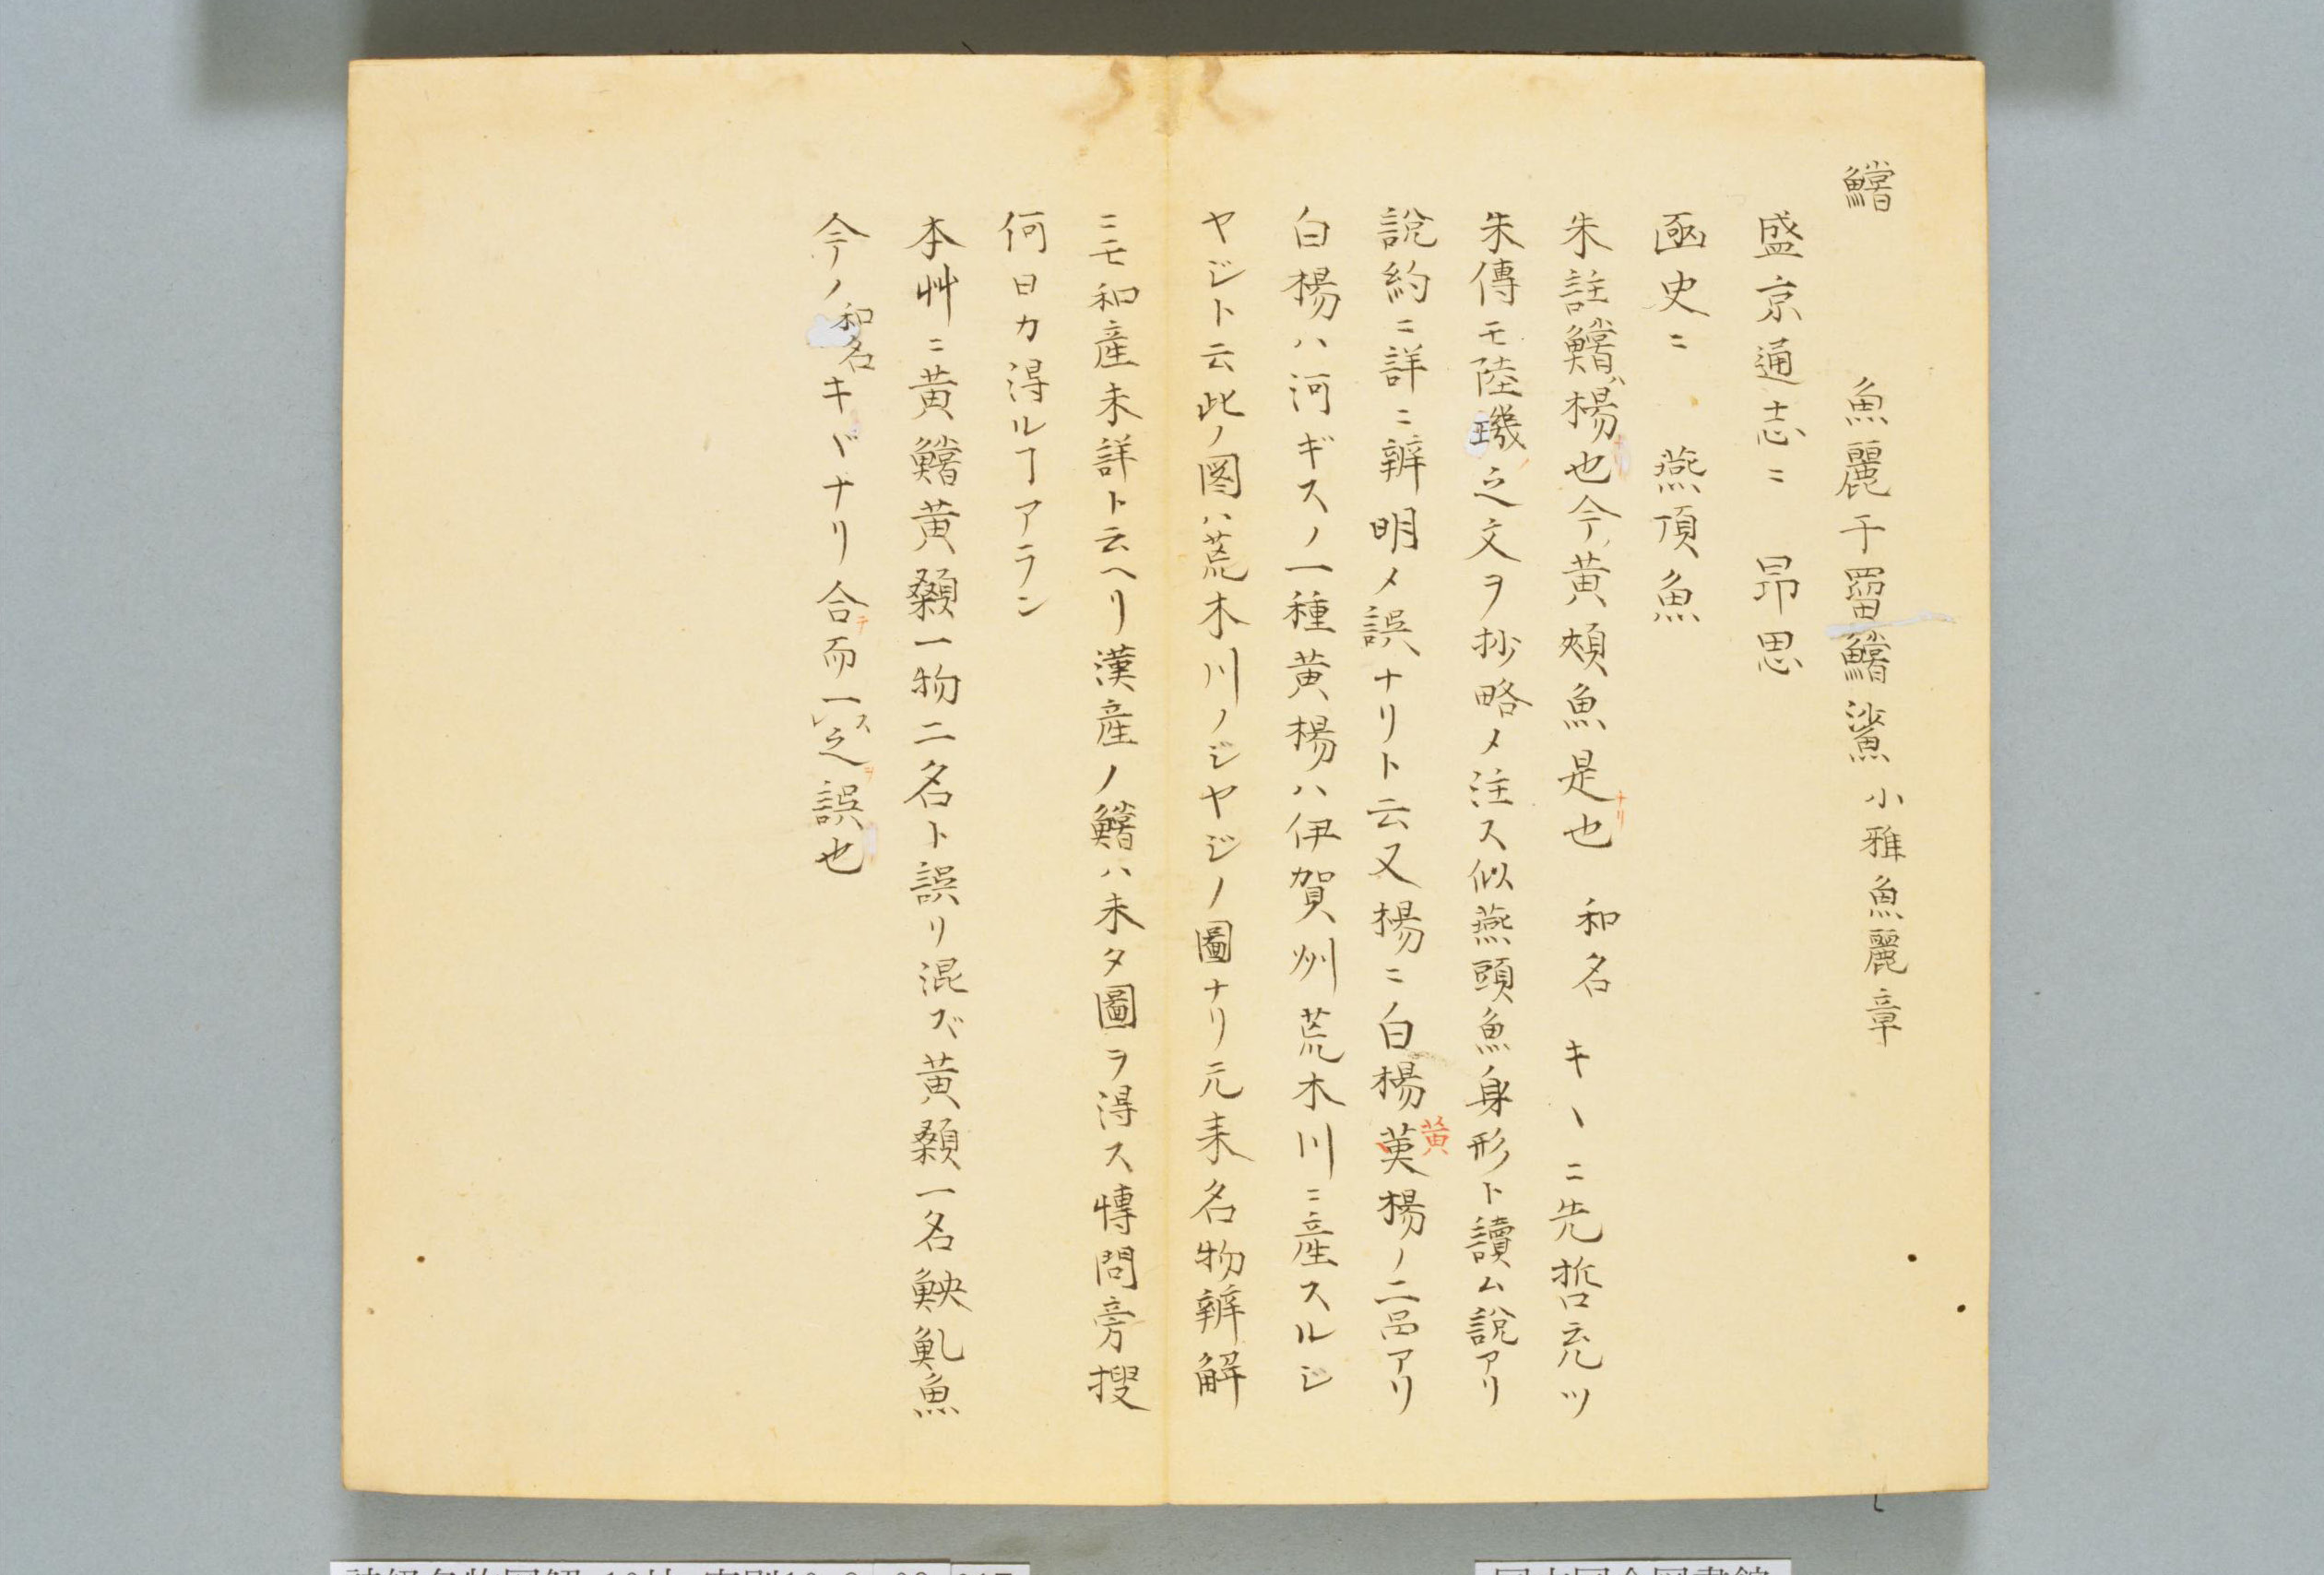 鱨　魚麗于罶鱨鯊 小雅魚麗章
盛京通志ニ　昂思
函史ニ　燕頂魚
朱註鱨ハ楊也今ノ黄頰魚是也ナリ　和名　キヽニ先哲充ツ
朱傳モ陸璣之文ヲ抄略メ注ス似燕頭魚身形ト讀ム説アリ
説約ニ詳ニ辨明メ誤ナリト云又楊ニ白楊黄楊ノ二品アリ
白楊ハ河ギスノ一種黄楊ハ伊賀州荒木川ニ産スルジ
ヤジト云此ノ圖ハ荒木川ノジヤジノ圖ナリ元来名物辨解
ニモ和産未詳ト云ヘリ漢産ノ鱨ハ未タ圖ヲ得ス博問旁搜
何日カ得ルヿアラン
本艸ニ黄鱨黄顙一物二名ト誤リ混ズ黄顙一名鉠魚
今ノ和名キバナリ合テ而一ニス之ヲ誤也